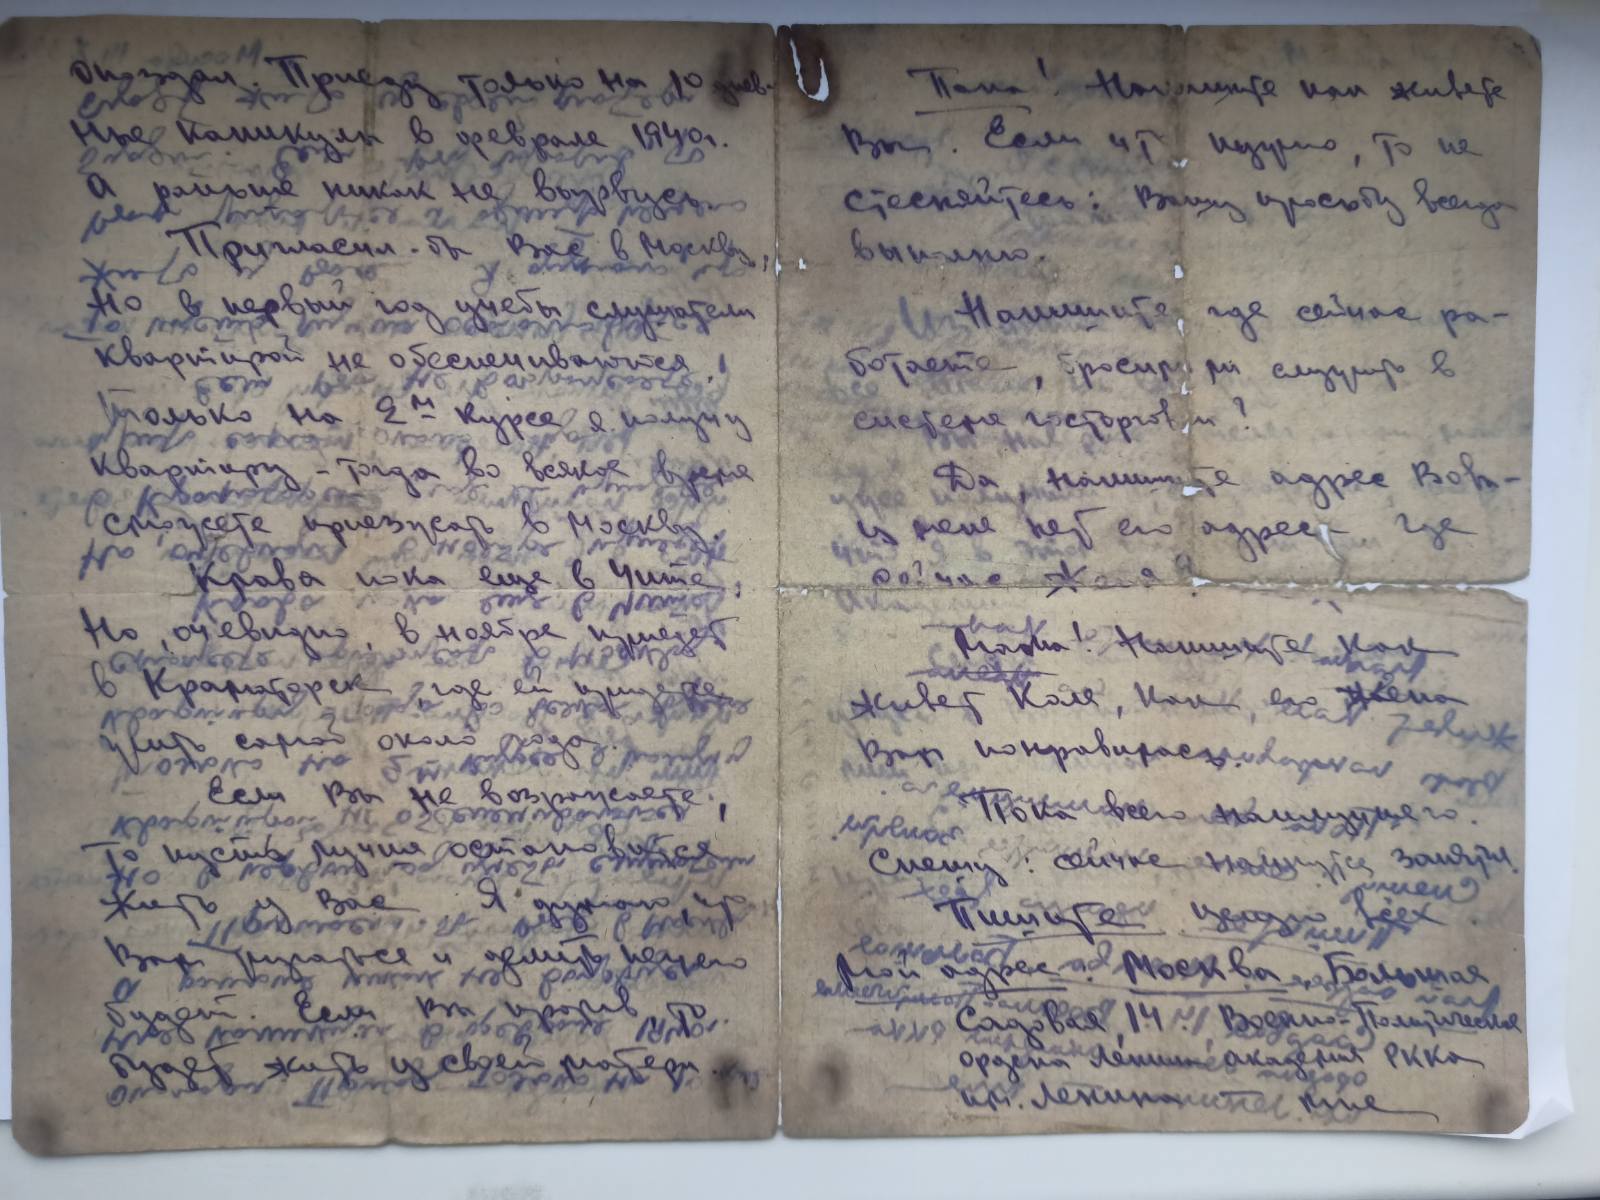 опоздал. Приеду только на 10 днев-
ные каникулы в феврале 1940г.
А раньше никак не вырвусь.
Пригласил-бы Вас в Москву,
но в первый год учебы слушатели
квартирой не обеспечиваются,
только на 2м курсе я получу
квартиру – тогда во всякое время
сможете приезжать в Москву.
Крава пока еще в Чите,
Но, очевидно, в ноябре приедет
в Краматорск, где ей придется
жить самой около года.
Если Вы не возражаете,
то пусть лучше остановится
жить у Вас. Я думаю, что
Вам ругаться и делить нечего
будет. Если Вы против, то
будет жить у своей матери.
Папа! Напишите как живете
Вы. Если что нужно, то не
стесняйтесь: Вашу просьбу всегда
выполню.
Напишите где сейчас ра-
ботаете, бросили ли служить в
системе госторговли?
Да, напишите адрес Вовы-
у меня нет его адреса где
сейчас Женя?
Мама! Напишите как
живет Коля, как его жена
Вам понравилась.
Пока всего наилучшего.
Спешу: сейчас начнутся занятия.
Пишите целую всех.
Мой адрес: Москва, Большая
Садовая, 14. Военно-Политическая
ордена Ленина академия РККА
им. Ленина мне